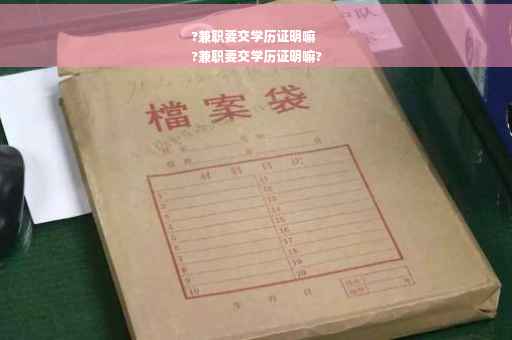 ?兼职要交学历证明嘛
?兼职要交学历证明嘛?
檔案袋
材料目次
1 11
2 12
3 13
4 14
5 15
6 16
7 17
8 18
9 19
10 20
年 月 日